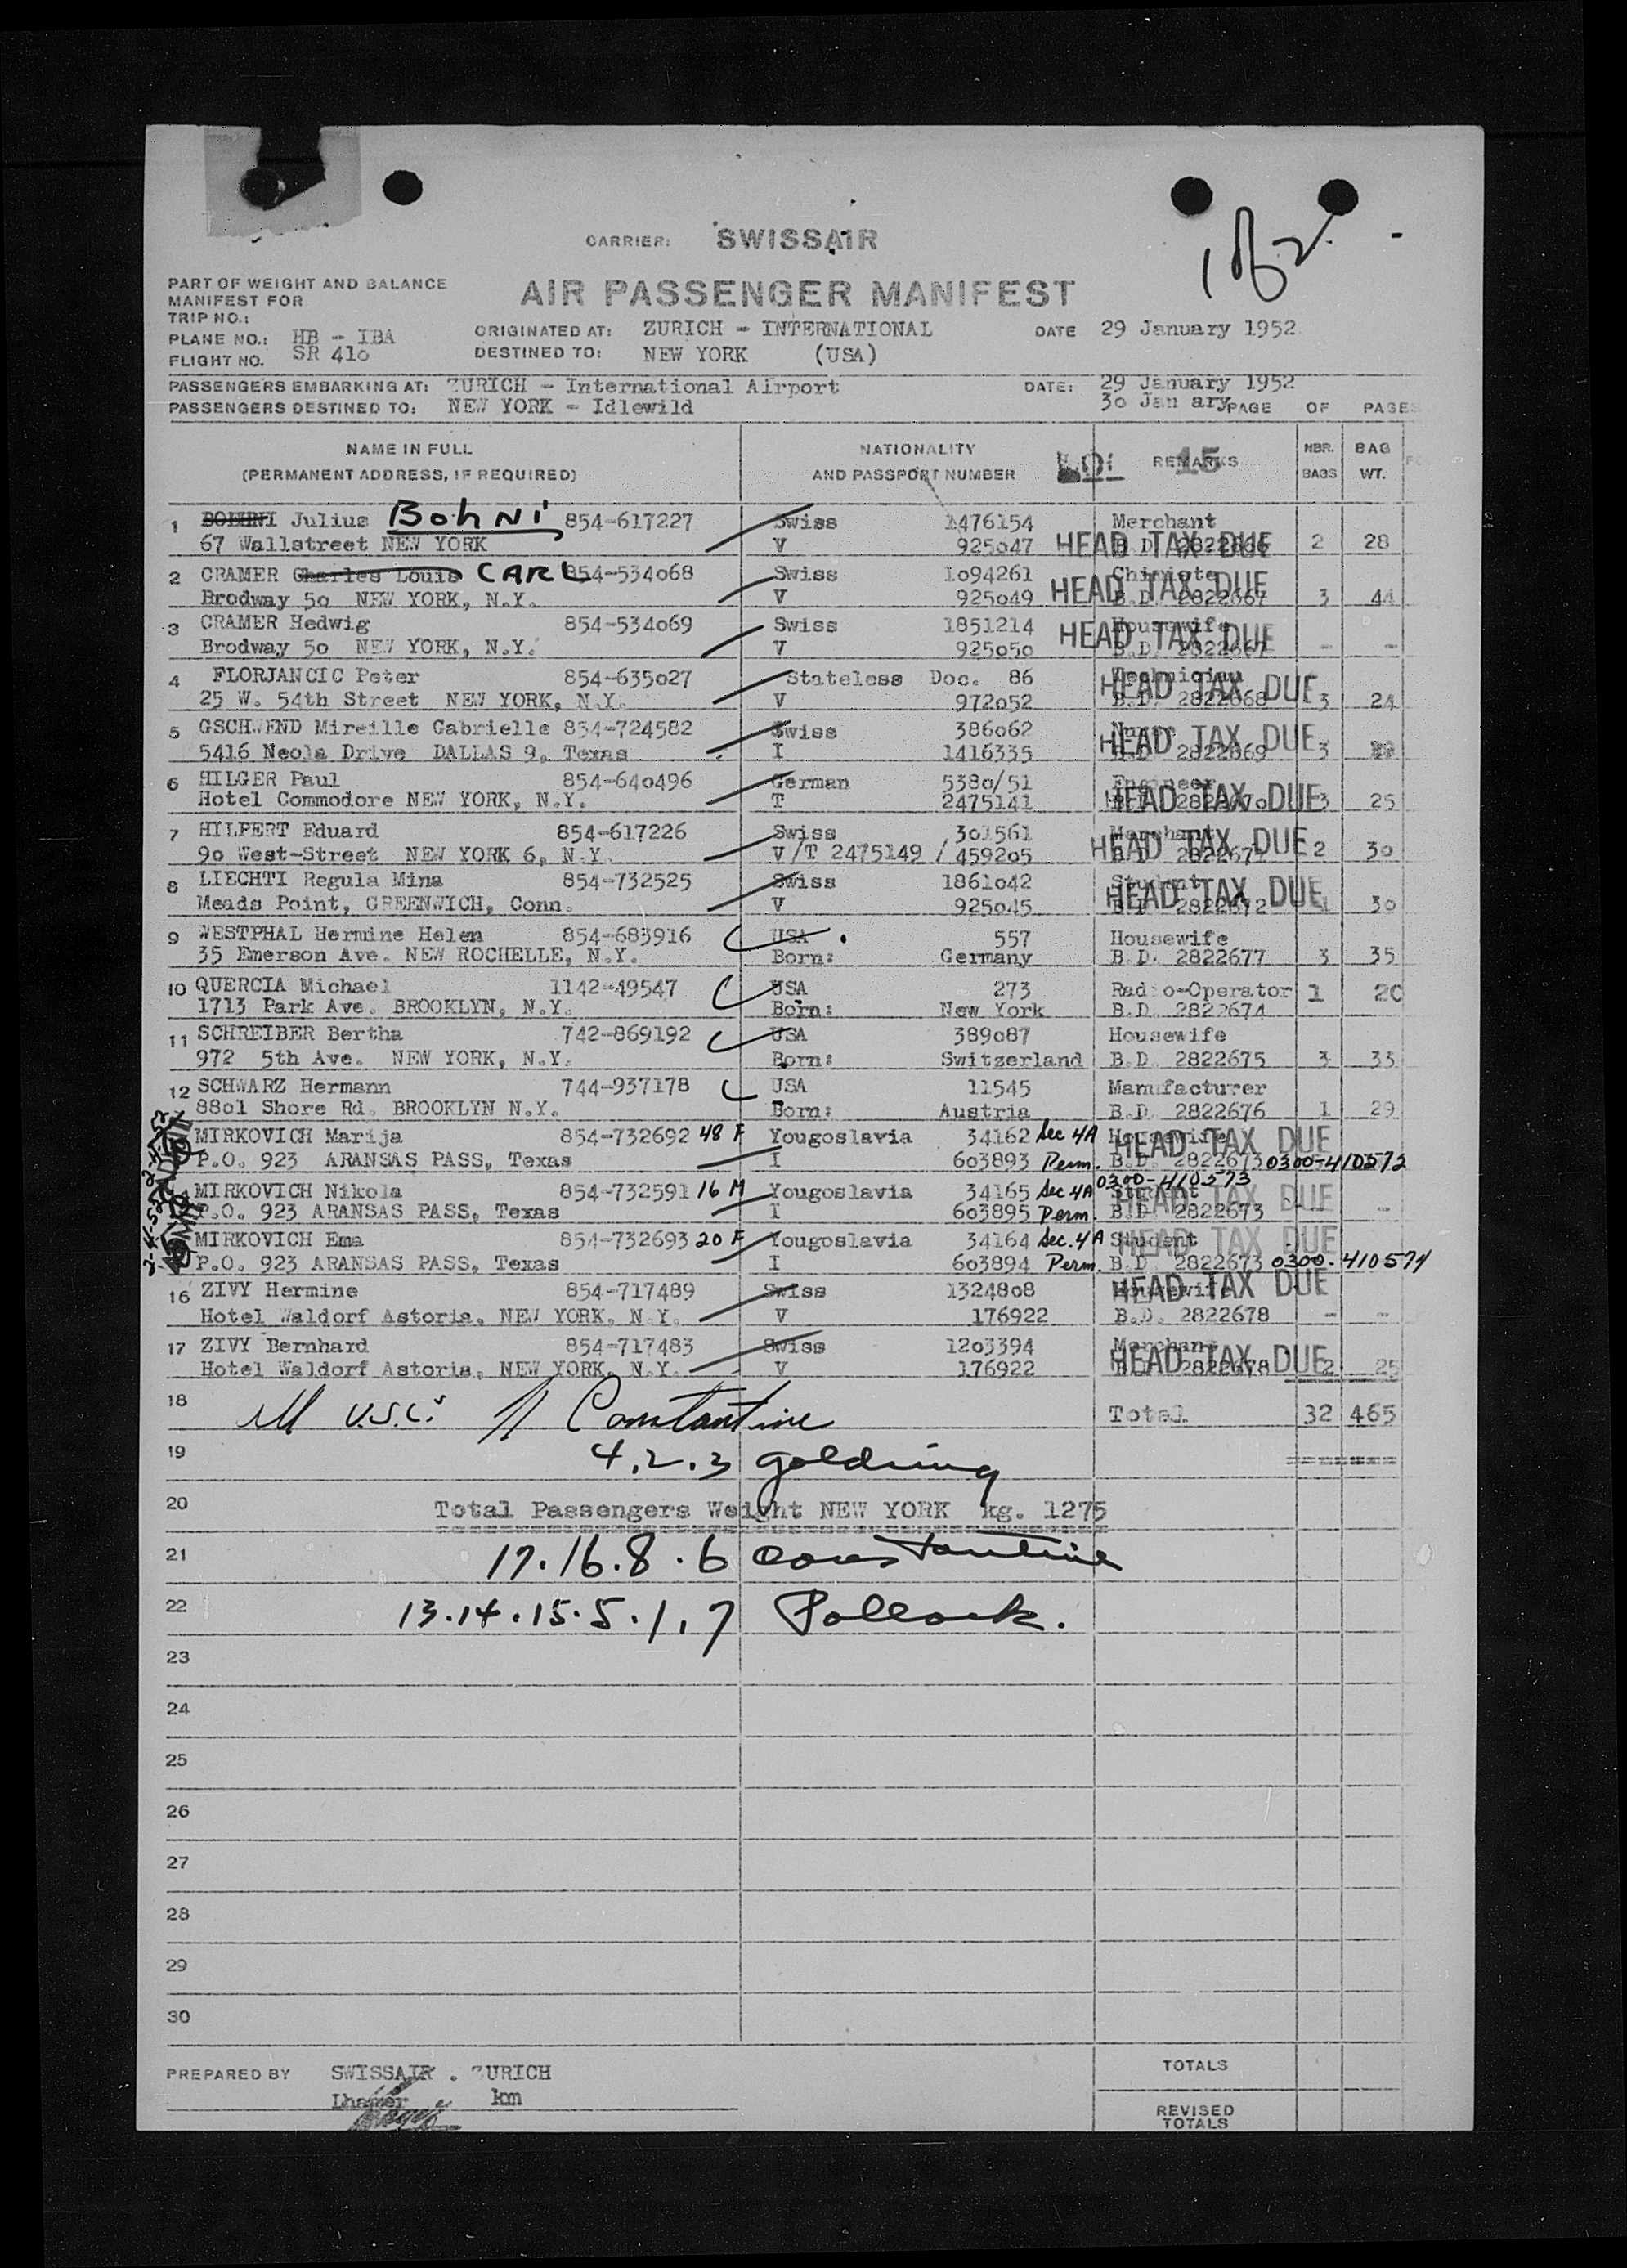 1 of 2.
CARRIER: SWISSAIR
PART OF WEIGHT AND BALANCE
MANIFEST FOR
TRIP NO.:
AIR PASSENGER MANIFEST
PLANE NO.: HB - IBA ORIGINATED AT: ZURICH - INTERNATIONAL DATE 29 January 1952
FLIGHT NO. SR 41o DESTINED TO: NEW YORK (USA)
PASSENGERS EMBARKING AT: ZURICH - International Airport DATE: 29 January 1952
PASSENGERS DESTINED TO: NEW YORK - Idlewild 3o Jan ary PAGE OF PAGES
NAME IN FULL NATIONALITY REMARKS NBR. BAG
(PERMANENT ADDRESS, IF REQUIRED) AND PASSPORT NUMBER 15 BAGS WT.
1 Julius BohNi 854-617227 Swiss 1476154 Merchant
67 Wallstreet NEW YORK V 925o47 HEAD TAX DUE 2 28
2 CRAMER Charles Louis CARL 854-534o68 Swiss 1o94261 Chimiste
Brodway 5o NEW YORK, N.Y. V 925o49 HEAD TAX DUE B.D. 2822667 3 44
3 CRAMER Hedwig 854-534o69 Swiss 1851214 Housewife
Brodway 5o NEW YORK, N.Y. V 925o5o HEAD TAX DUE B.D. 2822667 - -
4 FLORJANCIC Peter 854-635o27 Stateless Doc. 86 Technician
25 W. 54th Street NEW YORK, N.Y. V 972o52 HEAD TAX DUE B.D. 2822668 3 24
5 GSCHWEND Mireille Gabrielle 854-724582 Swiss 386o62
5416 Neola Drive DALLAS 9, Texas I 1416335 HEAD TAX DUE 2822669 3
6 HILGER Paul 854-64o496 German 538o/51 Engineer
Hotel Commodore NEW YORK, N.Y. T 2475141 HEAD TAX DUE 282267o 3 25
7 HILPERT Eduard 854-617226 Swiss 3o1561 Merchant
9o West-Street NEW YORK 6, N.Y. V/T 2475149 / 4592o5 HEAD TAX DUE 2 3o
8 LIECHTI Regula Mina 854-732525 Swiss 1861o42 Student
Meads Point, GREENWICH, Conn. V 925o45 HEAD TAX DUE 2822672 3o
9 WESTPHAL Hermine Helen 854-683916 USA 557 Housewife
35 Emerson Ave. NEW ROCHELLE, N.Y. Born: Germany B.D. 2822677 3 35
10 QUERCIA Michael 1142-49547 USA 273 Radio-Operator 1 20
1713 Park Ave. BROOKLYN, N.Y. Born: New York B.D. 2822674
11 SCHREIBER Bertha 742-869192 USA 389o87 Housewife
972 5th Ave. NEW YORK, N.Y. Born: Switzerland B.D. 2822675 3 33
12 SCHWARZ Hermann 744-937178 USA 11545 Manufacturer
88o1 Shore Rd. BROOKLYN N.Y. Born: Austria B.D. 2822676 1 29
MIRKOVICH Marija 854-732692 48 F Yougoslavia 34162 Sec 4A Housewife HEAD TAX DUE
P.O. 923 ARANSAS PASS, Texas I 6o3893 Perm. B.D. 2822673 0300-410572
MIRKOVICH Nikola 854-732591 16 M Yougoslavia 34165 Sec 4A 0300-410573 Student HEAD TAX DUE
P.O. 923 ARANSAS PASS, Texas I 6o3895 Perm. B.D. 2822673 -
MIRKOVICH Ema 854-732693 20 F Yougoslavia 34164 Sec. 4A Student HEAD TAX DUE
P.O. 923 ARANSAS PASS, Texas I 6o3894 Perm. B.D. 2822673 0300-410574
16 ZIVY Hermine 854-717489 Swiss 13248o8 Housewife HEAD TAX DUE
Hotel Waldorf Astoria, NEW YORK, N.Y. V 176922 B.D. 2822678 - -
17 ZIVY Bernhard 854-717483 Swiss 12o3394 Merchant
Hotel Waldorf Astoria, NEW YORK, N.Y. V 176922 HEAD TAX DUE 2822678 2 25
18 All U.S.C.'s Constantine Total 32 465
19 4.2.3 Goldring
20 Total Passengers Weight NEW YORK kg. 1275
21 17.16.8.6 Constantine
22 13.14.15.5.1.7 Pollack.
23
24
25
26
27
28
29
30
PREPARED BY SWISSAIR . ZURICH TOTALS
Lhamer km
REVISED
TOTALS